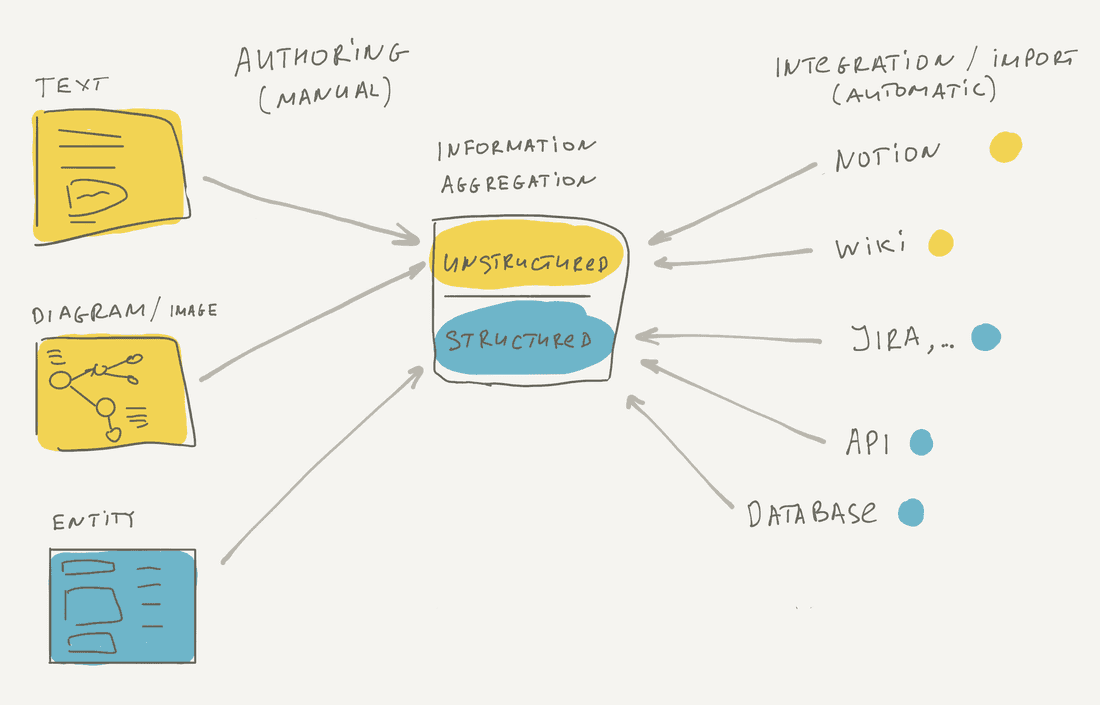 TEXT
AUTHORING
(MANUAL)
DIAGRAM/IMAGE
ENTITY
INFORMATION
AGGREGATION
UNSTRUCTURED
STRUCTURED
INTEGRATION / IMPORT
(AUTOMATIC)
NOTION
WIKI
JIRA,...
API
DATABASE